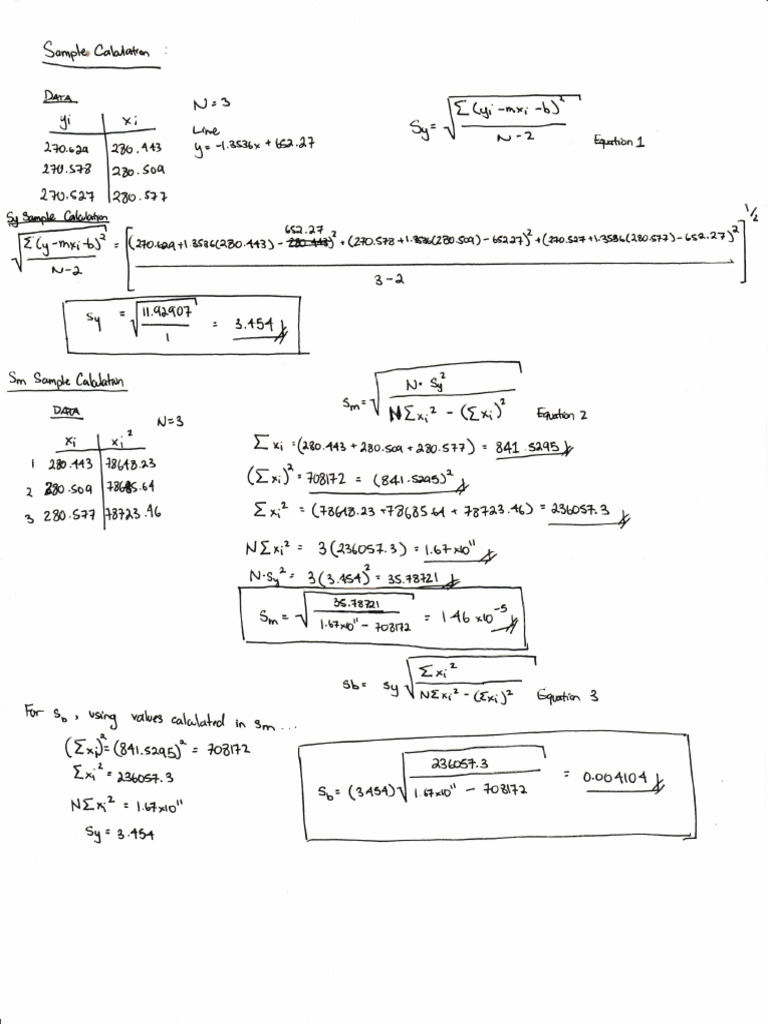 Sample Calculation :
DATA
yi xi
270.629 280.443
270.578 280.509
270.527 280.577
N = 3
Line
y = -1.3536x + 652.27
Sy = √(Σ(yi - mxi - b)² / N - 2) Equation 1
Sy Sample Calculation
√(Σ(y - mxi - b)² / N - 2) = [((270.629 + 1.3536(280.443) - 652.27)² + (270.578 + 1.3536(280.509) - 652.27)² + (270.527 + 1.3536(280.577) - 652.27)²) / 3 - 2]^1/2
Sy = √(11.92907 / 1) = 3.454
Sm Sample Calculation
DATA
N = 3
xi xi²
1 280.443 78648.23
2 280.509 78685.64
3 280.577 78723.46
Sm = √(N · Sy² / NΣxi² - (Σxi)²) Equation 2
Σxi = (280.443 + 280.509 + 280.577) = 841.5295
(Σxi)² = 708172 = (841.5295)²
Σxi² = (78648.23 + 78685.64 + 78723.46) = 236057.3
NΣxi² = 3(236057.3) = 1.67x10¹¹
N·Sy² = 3(3.454)² = 35.78721
Sm = √(35.78721 / 1.67x10¹¹ - 708172) = 1.46 x10⁻⁵
Sb = Sy √(Σxi² / NΣxi² - (Σxi)²) Equation 3
For Sb, using values calculated in Sm...
(Σxi)² = (841.5295)² = 708172
Σxi² = 236057.3
NΣxi² = 1.67x10¹¹
Sy = 3.454
Sb = (3.454) √(236057.3 / 1.67x10¹¹ - 708172) = 0.004104